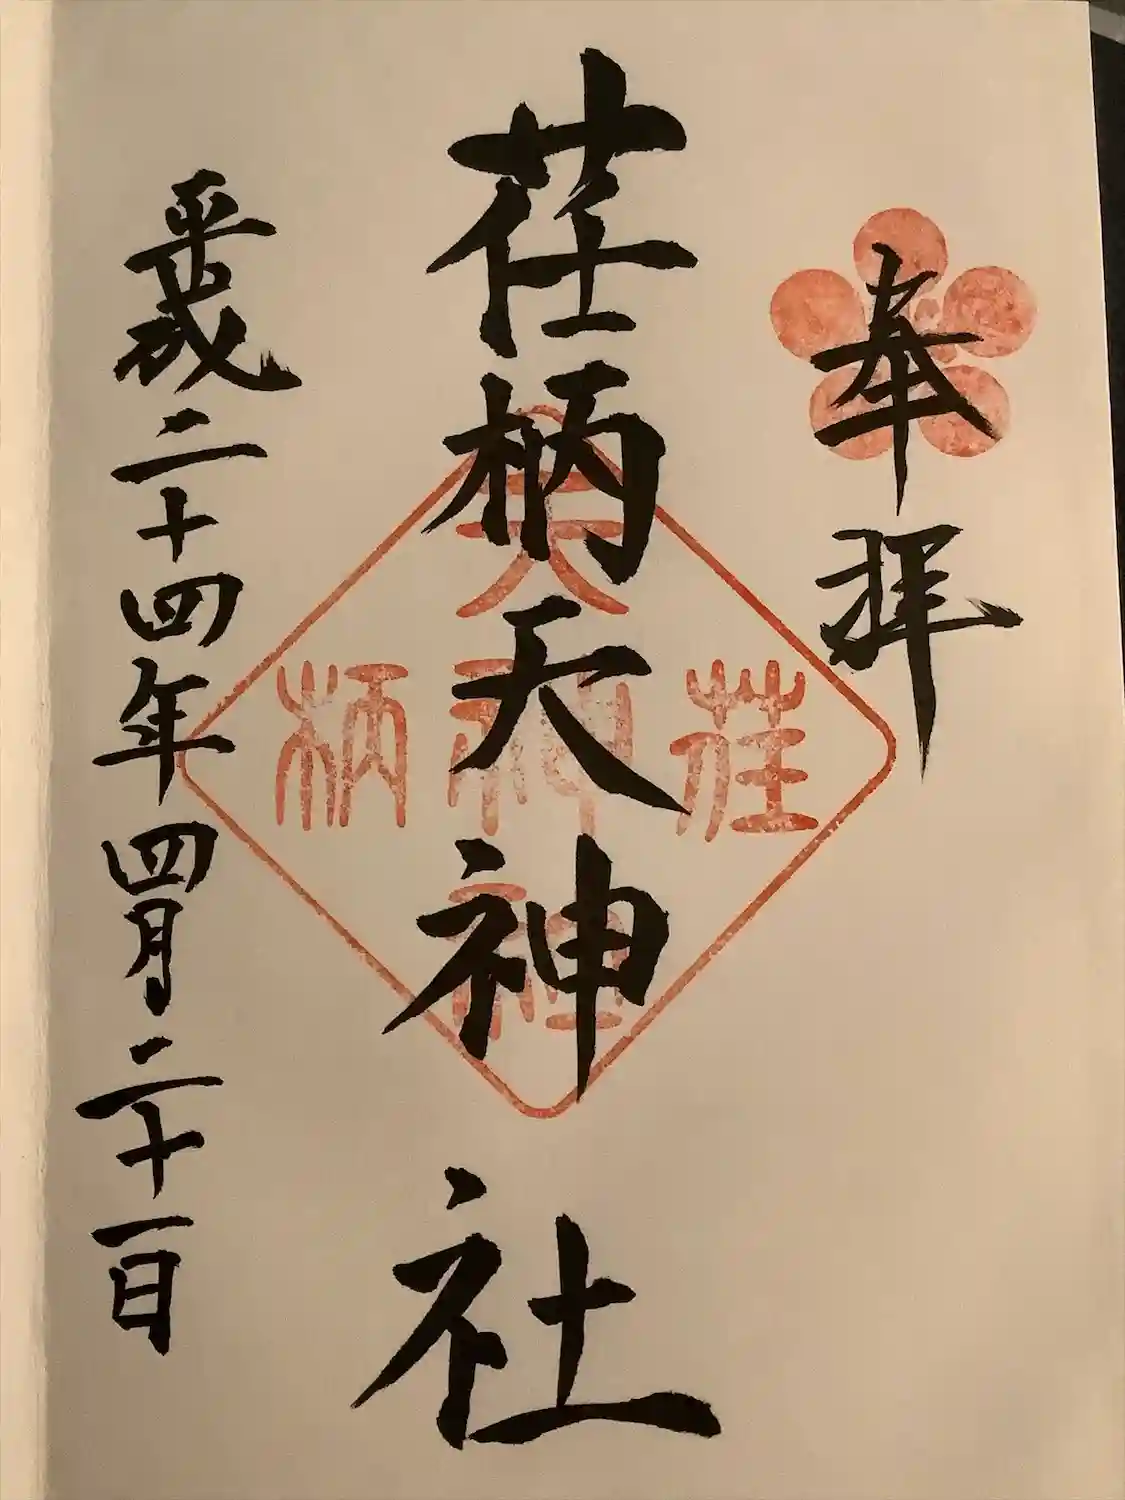 奉拝
荏柄天神社
平成二十四年四月二十一日
荏柄
天神社